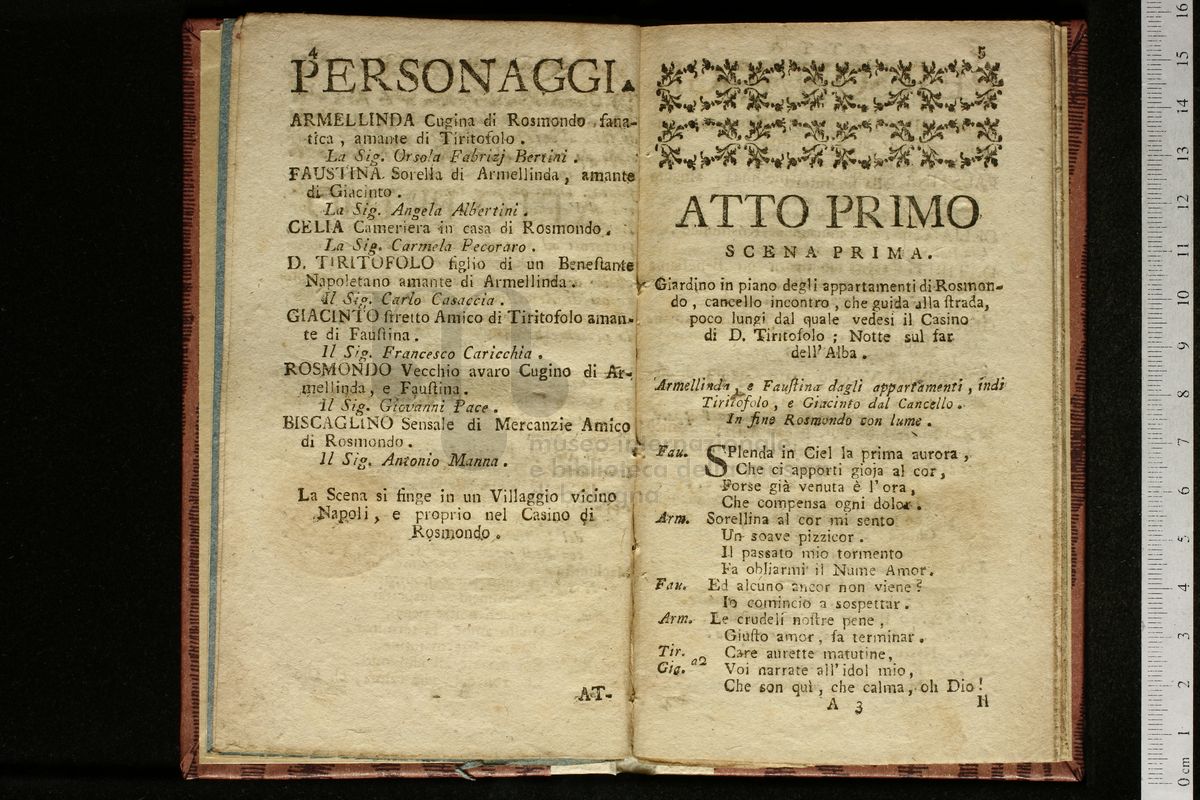 4
PERSONAGGI.
ARMELLINDA Cugina di Rosmondo, fana-
tica, amante di Tiritofolo.
La Sig. Orsola Fabrizj Bertini.
FAUSTINA Sorella di Armellinda, amante
di Giacinto.
La Sig. Angela Albertini.
CELIA Cameriera in casa di Rosmondo.
La Sig. Carmela Pecoraro.
D. TIRITOFOLO figlio di un Beneſtante
Napoletano amante di Armellinda.
Il Sig. Carlo Casaccia.
GIACINTO ſtretto Amico di Tiritofolo aman-
te di Fauſtina.
Il Sig. Francesco Caricchia.
ROSMONDO Vecchio avaro Cugino di Ar-
mellinda, e Fauſtina.
Il Sig. Giovanni Pace.
BISCAGLINO Sensale di Mercanzie Amico
di Rosmondo.
Il Sig. Antonio Manna.
La Scena si finge in un Villaggio vicino
Napoli, e proprio nel Casino di
Rosmondo.
AT-
5
ATTO PRIMO
SCENA PRIMA.
Giardino in piano degli appartamenti di Rosmon-
do, cancello incontro, che guida alla ſtrada,
poco lungi dal quale vedesi il Casino
di D. Tiritofolo; Notte sul far
dell'Alba.
Armellinda, e Fauſtina dagli appartamenti, indi
Tiritofolo, e Giacinto dal Cancello.
In fine Rosmondo con lume.
Fau. SPlenda in Ciel la prima aurora,
Che ci apporti gioja al cor,
Forse già venuta è l'ora,
Che compensa ogni dolor.
Arm. Sorellina al cor mi sento
Un soave pizzicor.
Il passato mio tormento
Fa obliarmi il Nume Amor.
Fau. Ed alcuno ancor non viene?
Io comincio a sospettar.
Arm. Le crudeli noſtre pene,
Giuſto amor, fa terminar.
Tir. Care aurette matutine,
Gia. a2 Voi narrate all'idol mio,
Che son quì, che calma, oh Dio!
A 3 Il
museo internazionale
e biblioteca de
0 cm 1 2 3 4 5 6 7 8 9 10 11 12 13 14 15 16